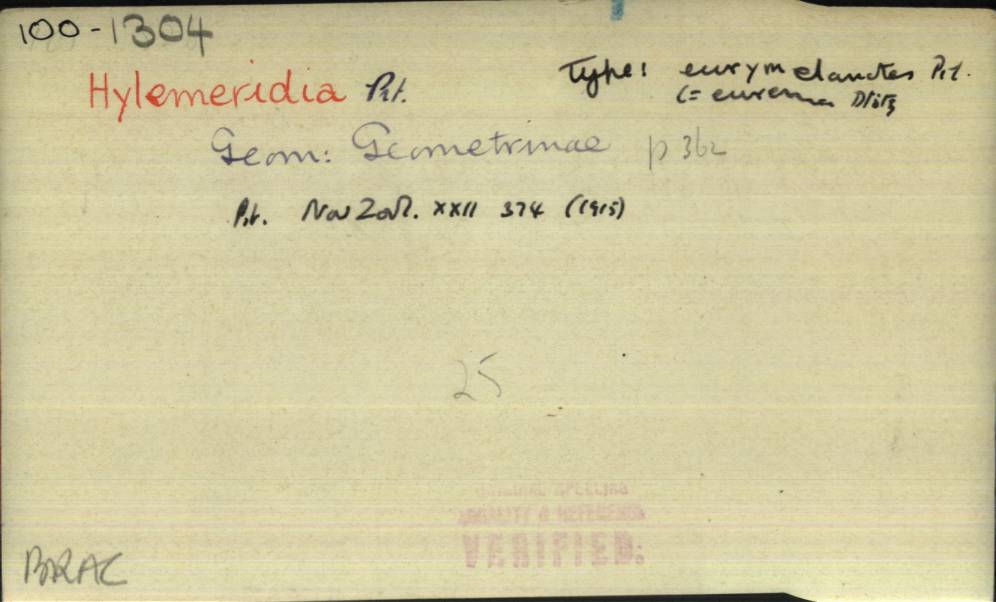 100-1304
Hylemeridia Prt. Type: eurymelanotes Prt.
(= eurema Plötz
Geom: Geometrinae p 362
Prt. Nov Zool. XXII 374 (1915)
25
ORIGINAL SPELLING
VALIDITY & REFERENCE
VERIFIED.